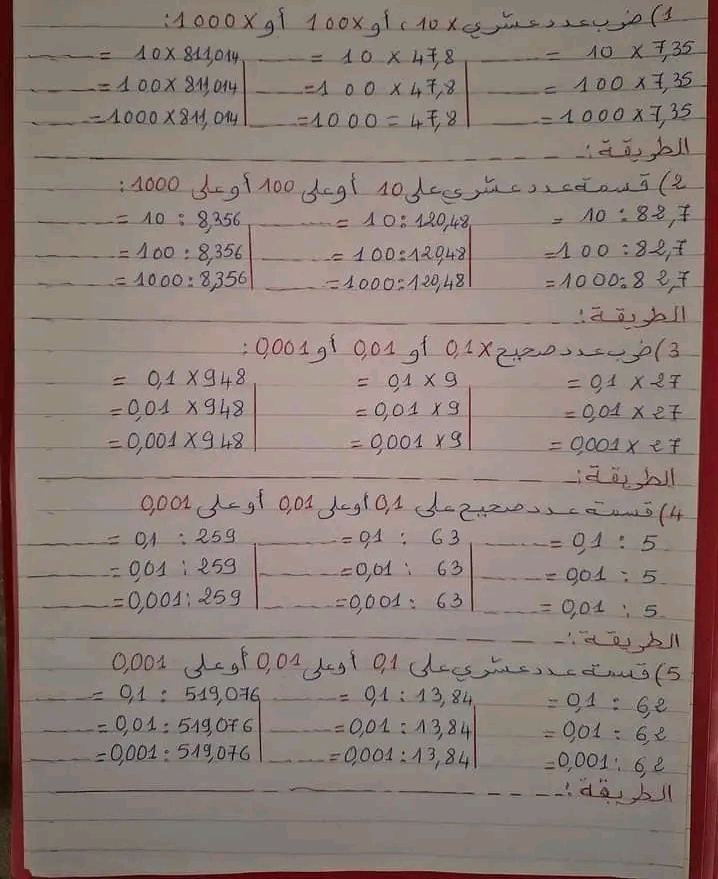 1) ضرب عدد عشري x 10، أو x 100 أو x 1000:
7,35 x 10 = 47,8 x 10 = 811,014 x 10 =
7,35 x 100 = 47,8 x 100 = 811,014 x 100 =
7,35 x 1000 = 47,8 = 1000 = 811,014 x 1000 =
الطريقة:
2) قسمة عدد عشري على 10 أو على 100 أو على 1000:
82,7 : 10 = 120,48 : 10 = 8,356 : 10 =
82,7 : 100 = 120,48 : 100 = 8,356 : 100 =
82,7 : 1000 = 120,48 : 1000 = 8,356 : 1000 =
الطريقة:
3) ضرب عدد صحيح x 0,1 أو 0,01 أو 0,001:
27 x 0,1 = 9 x 0,1 = 948 x 0,1 =
27 x 0,01 = 9 x 0,01 = 948 x 0,01 =
27 x 0,001 = 9 x 0,001 = 948 x 0,001 =
الطريقة:
4) قسمة عدد صحيح على 0,1 أو على 0,01 أو على 0,001
5 : 0,1 = 63 : 0,1 = 259 : 0,1 =
5 : 0,01 = 63 : 0,01 = 259 : 0,01 =
5 : 0,01 = 63 : 0,001 = 259 : 0,001 =
الطريقة:
5) قسمة عدد عشري على 0,1 أو على 0,01 أو على 0,001
6,2 : 0,1 = 13,84 : 0,1 = 519,076 : 0,1 =
6,2 : 0,01 = 13,84 : 0,01 = 519,076 : 0,01 =
6,2 : 0,001 = 13,84 : 0,001 = 519,076 : 0,001 =
الطريقة: